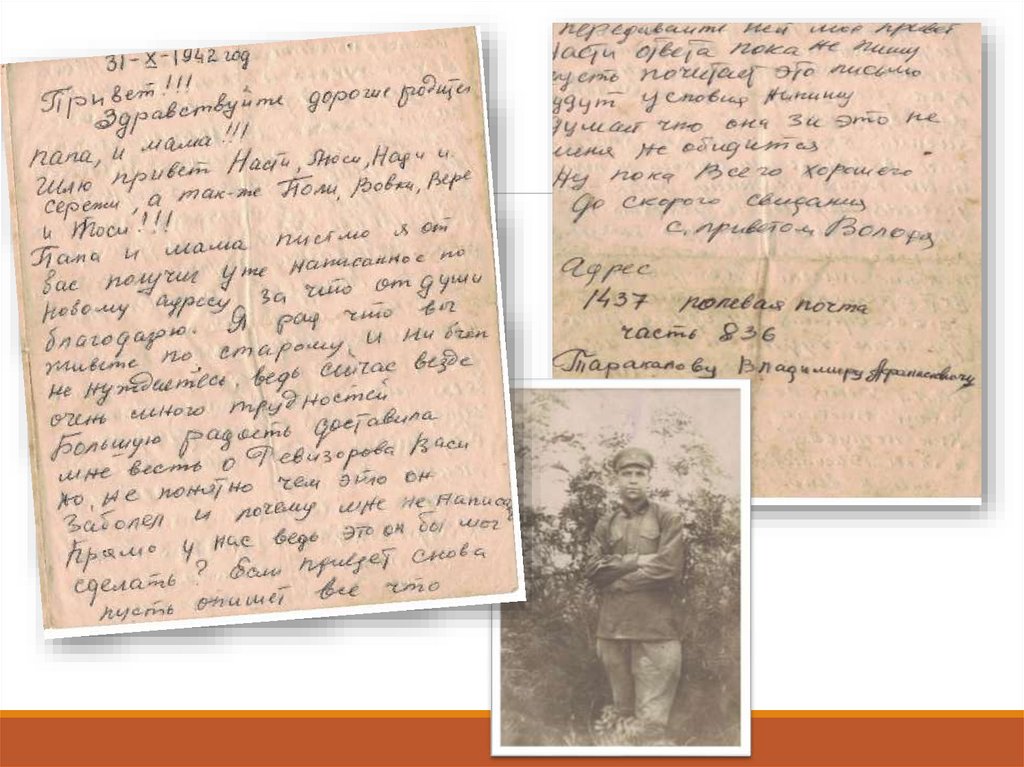 31-X-1942 год
Привет!!!
Здравствуйте дорогие родители
папа, и мама!!!
Шлю привет Насти, Люси, Нади и
сережи, а так-же Поли, Вовки, Вере
и Тоси!!!
Папа и мама письмо я от
вас получил уже написанное по
новому адресу за что от души
благодарю. Я рад что вы
живете по, старому, и ни в чем
не нуждаетесь, ведь сейчас везде
очень много трудностей
Большую радость доставила
мне весть о Ревизорова Васи
но, не понятно чем это он
заболел и почему мне не написал
Прямо у нас ведь это он бы мог
сделать? Если придет снова
пусть опишет все что
передавайте ей мой привет
Насти ответа пока не пишу
пусть почитает это письмо
будут условия напишу
думаю что она за это не
меня не обидится
Ну пока Всего хорошего
До скорого свидания
с, приветом Володя
Адрес
1437 полевая почта
часть 836
Таракалову Владимиру Афанасьевичу